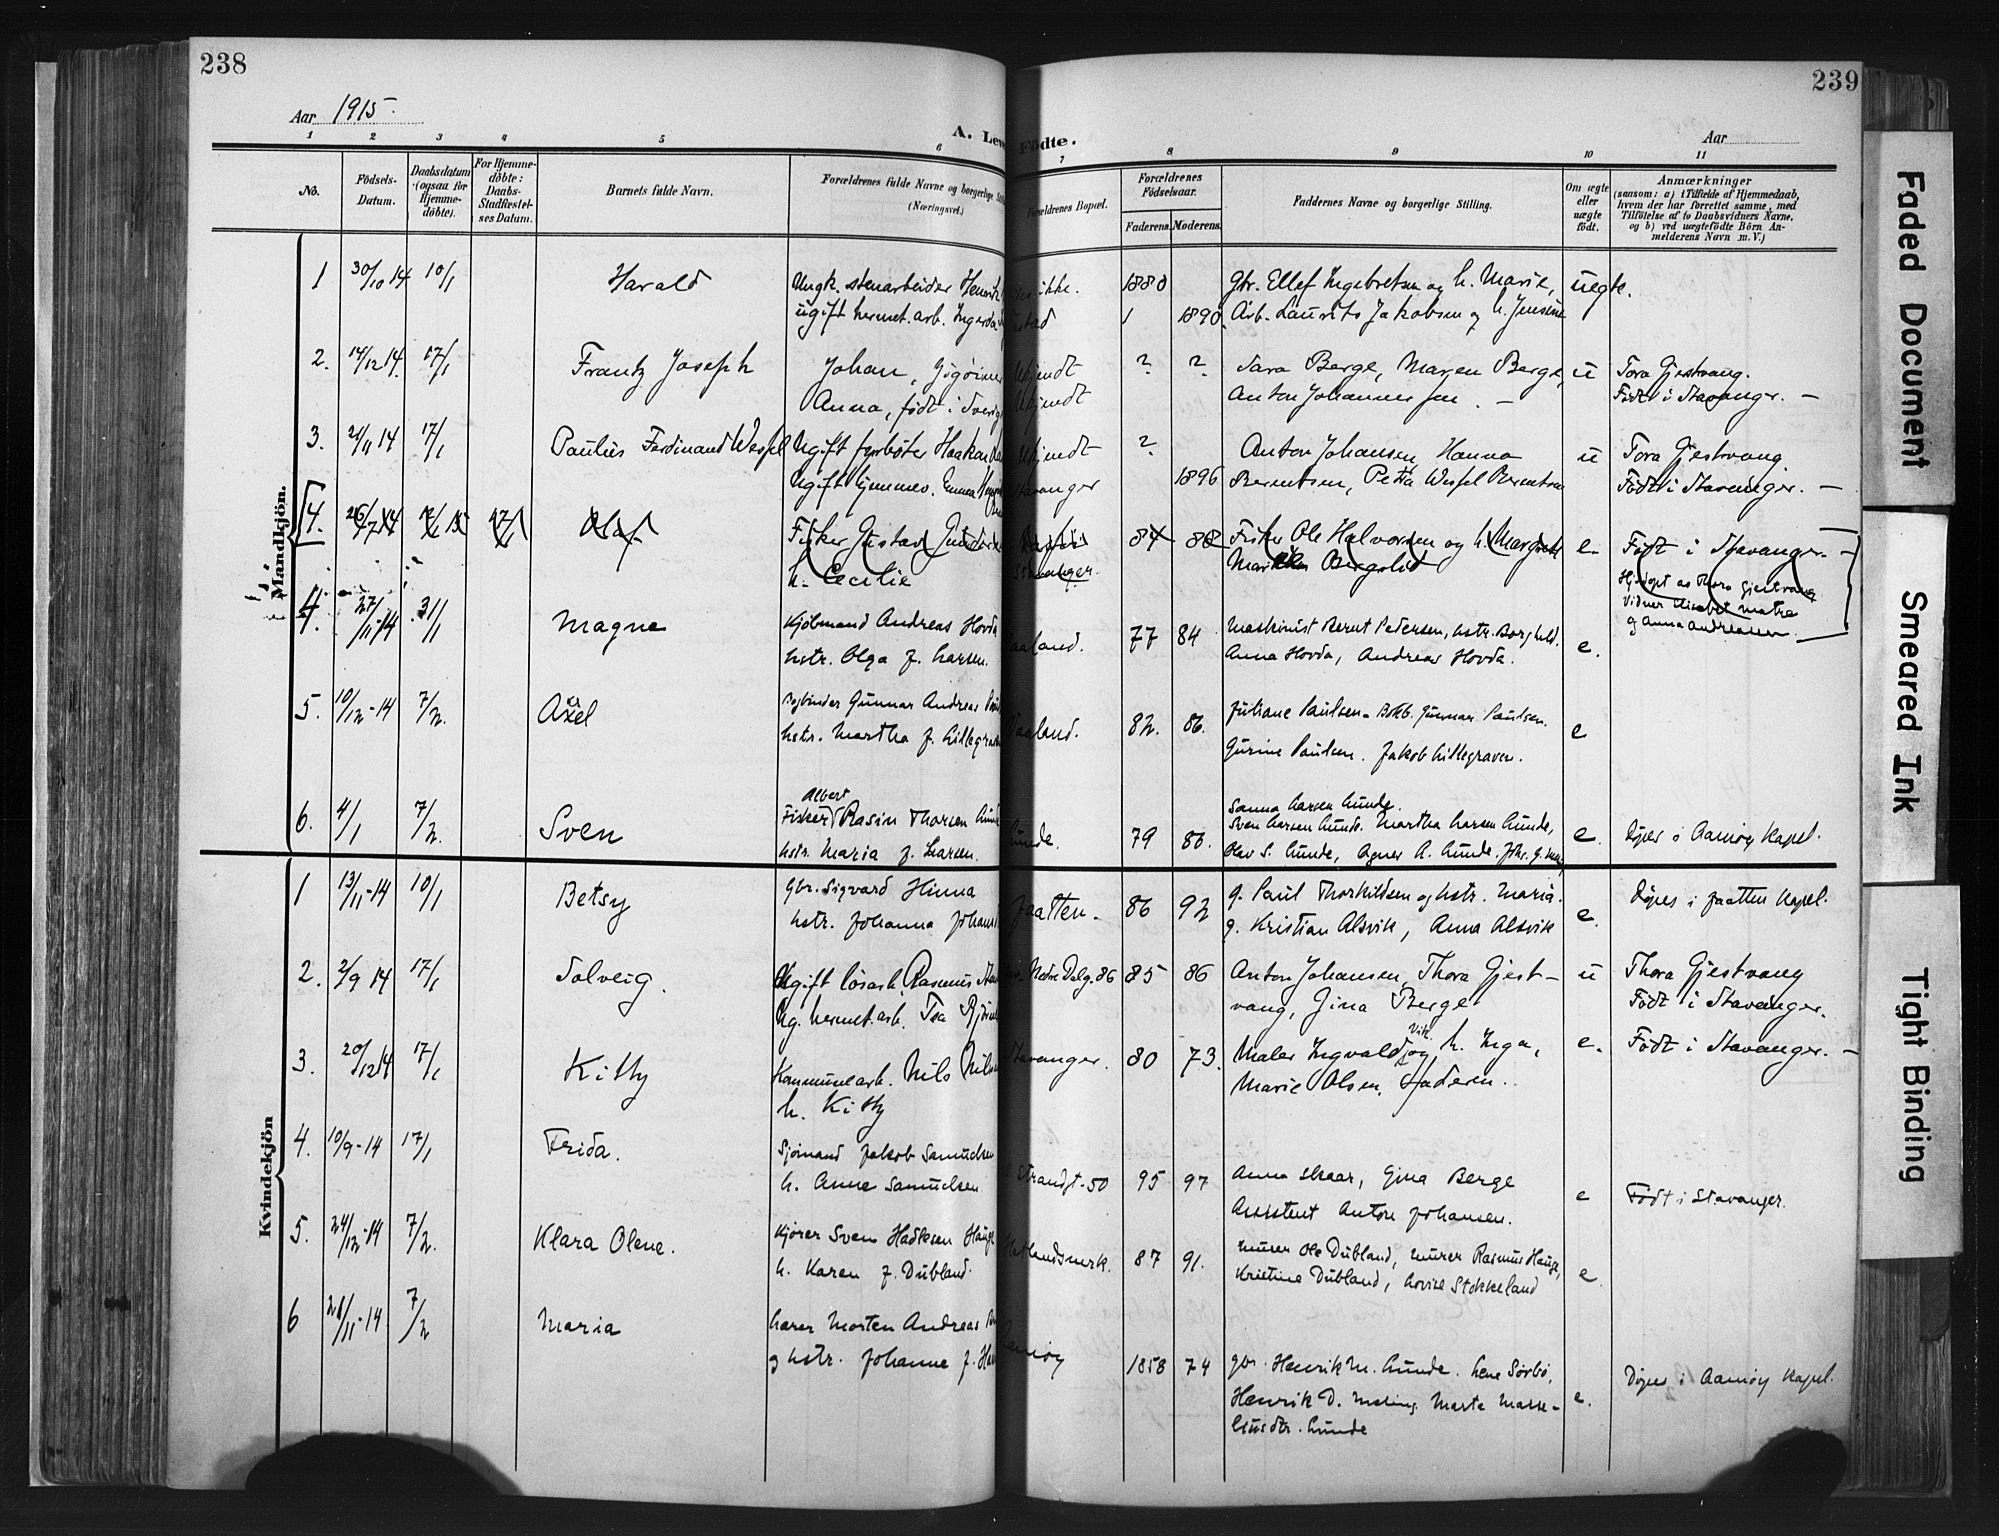 238
239
Aar 1915.
A. Lev Födte.
Aar
1 2 3 4 5 6 7 8 9 10 11
No.
Födsels-Datum.
Daabsdatum (ogsaa för Hjemme-döbte).
For Hjemme-döbte: Daabs-Stadfæstel-ses Datum.
Barnets fulde Navn.
Forældrenes fulde Navne og borgerlige Stil
(Næringsvei.)
Forældrenes Bopæl.
Forældrenes Födselsaar.
Faderens. Moderens.
Faddernes Navne og borgerlige Stilling.
Om ægte eller uægte födt.
Anmærkninger
(saasom: a) i Tilfælde af Hjemmedaab, hvem der har forrettet samme, med Tilföielse af to Daabsvidners Navne, og b) ved uægtefödte Börn An-melderens Navn m. V.)
Mandkjön.
1 30/10 14 10/1 Harald Ungk. stenarbeider Henrik ikke. 1880 Gbr. Ellef Ingebretsen og h. Marie, uegte.
ugift hermet. arb. Ingerda 1890. Arb. Laurits Jakobsen og h. Jensine
2. 14/12 14. 17/1 Frantz Joseph Johan, Ukjendt ? ? Sara Berge, Maren Berge, u Tora Gjestvang.
Anna, født i Sverig Ukjendt Anton Johannessen. — Født i Stavanger. —
3. 21/11 14 17/1 Paulus Ferdinand Wessel Ugift fyrbøter Haakon Ukjendt ? Anton Johansen, Hanna u Tora Gjestvang
Ugift hjemmev. Emma Stavanger 1896 Berentsen, Petra Wessel Berentsen Født i Stavanger. —
4. Olaf Fisker Gustav 84 88 Fisker Ole Halvorsen og h. Margrete e. Født i Stavanger. —
h. Cecilie Stavanger. Bergslid
Hj.døpt av Thora Gjestvang
Vidner Elisabet Matre
og Anna Andreassen
4. 27/11-14 31/1 Magne Kjøbmand Andreas Hovda aaland. 77 84 Maskinist Bernt Pedersen, hstr. Borghild. e.
hstr. Olga f. Larsen. Anna Hovda, Andreas Hovda.
5. 10/12-14 7/2. Axel Bogbinder Gunnar Andreas Vaaland. 82. 86. Juliane Paulsen. Bokb. Gunnar Paulsen. e
hstr. Martha f. Lillegraven Gurine Paulsen. Jakob Lillegraven.
Albert
6. 4/1 7/2 Sven Fisker Rasin Thorsen Lunde 79 86. Sanna Larsen Lunde.
Sven Larsen Lunde. Martha Larsen Lunde, e. Døpes i Aamøy Kapel.
hstr. Maria f. Larsen. Olav S. Lunde, Agnes A. Lunde.
Kvindekjön
1 13/11-14 10/1 Betsy Gbr. Sigvard Hinna Jaatten. 86 92 g. Paul Thorkildsen og hstr. Maria. e. Døpes i Jaatten Kapel.
hstr. Johanna Johans g. Kristian Alsvik, Anna Alsvik
2. 2/9 14 17/1 Solveig. Ugift løsarb. Rasmus Nedre Dalg. 86 85 86 Anton Johansen, Thora Gjest- u Thora Gjestvang
Ug. hermet. arb. Tea vang, Gina Berge Født i Stavanger.
3. 20/12 14 17/1 Kitty Kommunearb. Nils Nils Stavanger. 80 73. Maler Ingvald Vik og h. Inga, e. Født i Stavanger. —
h. Kitty Marie Olsen, Faderen.
4. 10/9-14 17/1 Frida. Sjømand Jakob Samuelsen
h. Anne Samuelsen Strandgt. 50 95 97 Anna Skaar, Gina Berge e Født i Stavanger.
Assistent Anton Johansen.
5. 24/12-14 7/2. Klara Olene. Kjører Sven Hadlesen Hauge Hetlandsmrk. 87 91. Murer Ole Dubland, murer Rasmus Hauge, e.
h. Karen f. Dubland. Kristine Dubland, Lovise Stokkeland
6 21/11-14 7/2 Maria Lærer Morten Andreas Aamøy 1858 74 gbr. Henrik M. Lunde. Lene Sørbø, e. Døpes i Aamøy Kapel.
og hstr. Johanne f. Henrik D. Meling. Marta Masse-
liusdtr. Lunde
Faded Document
Smeared Ink
Tight Binding